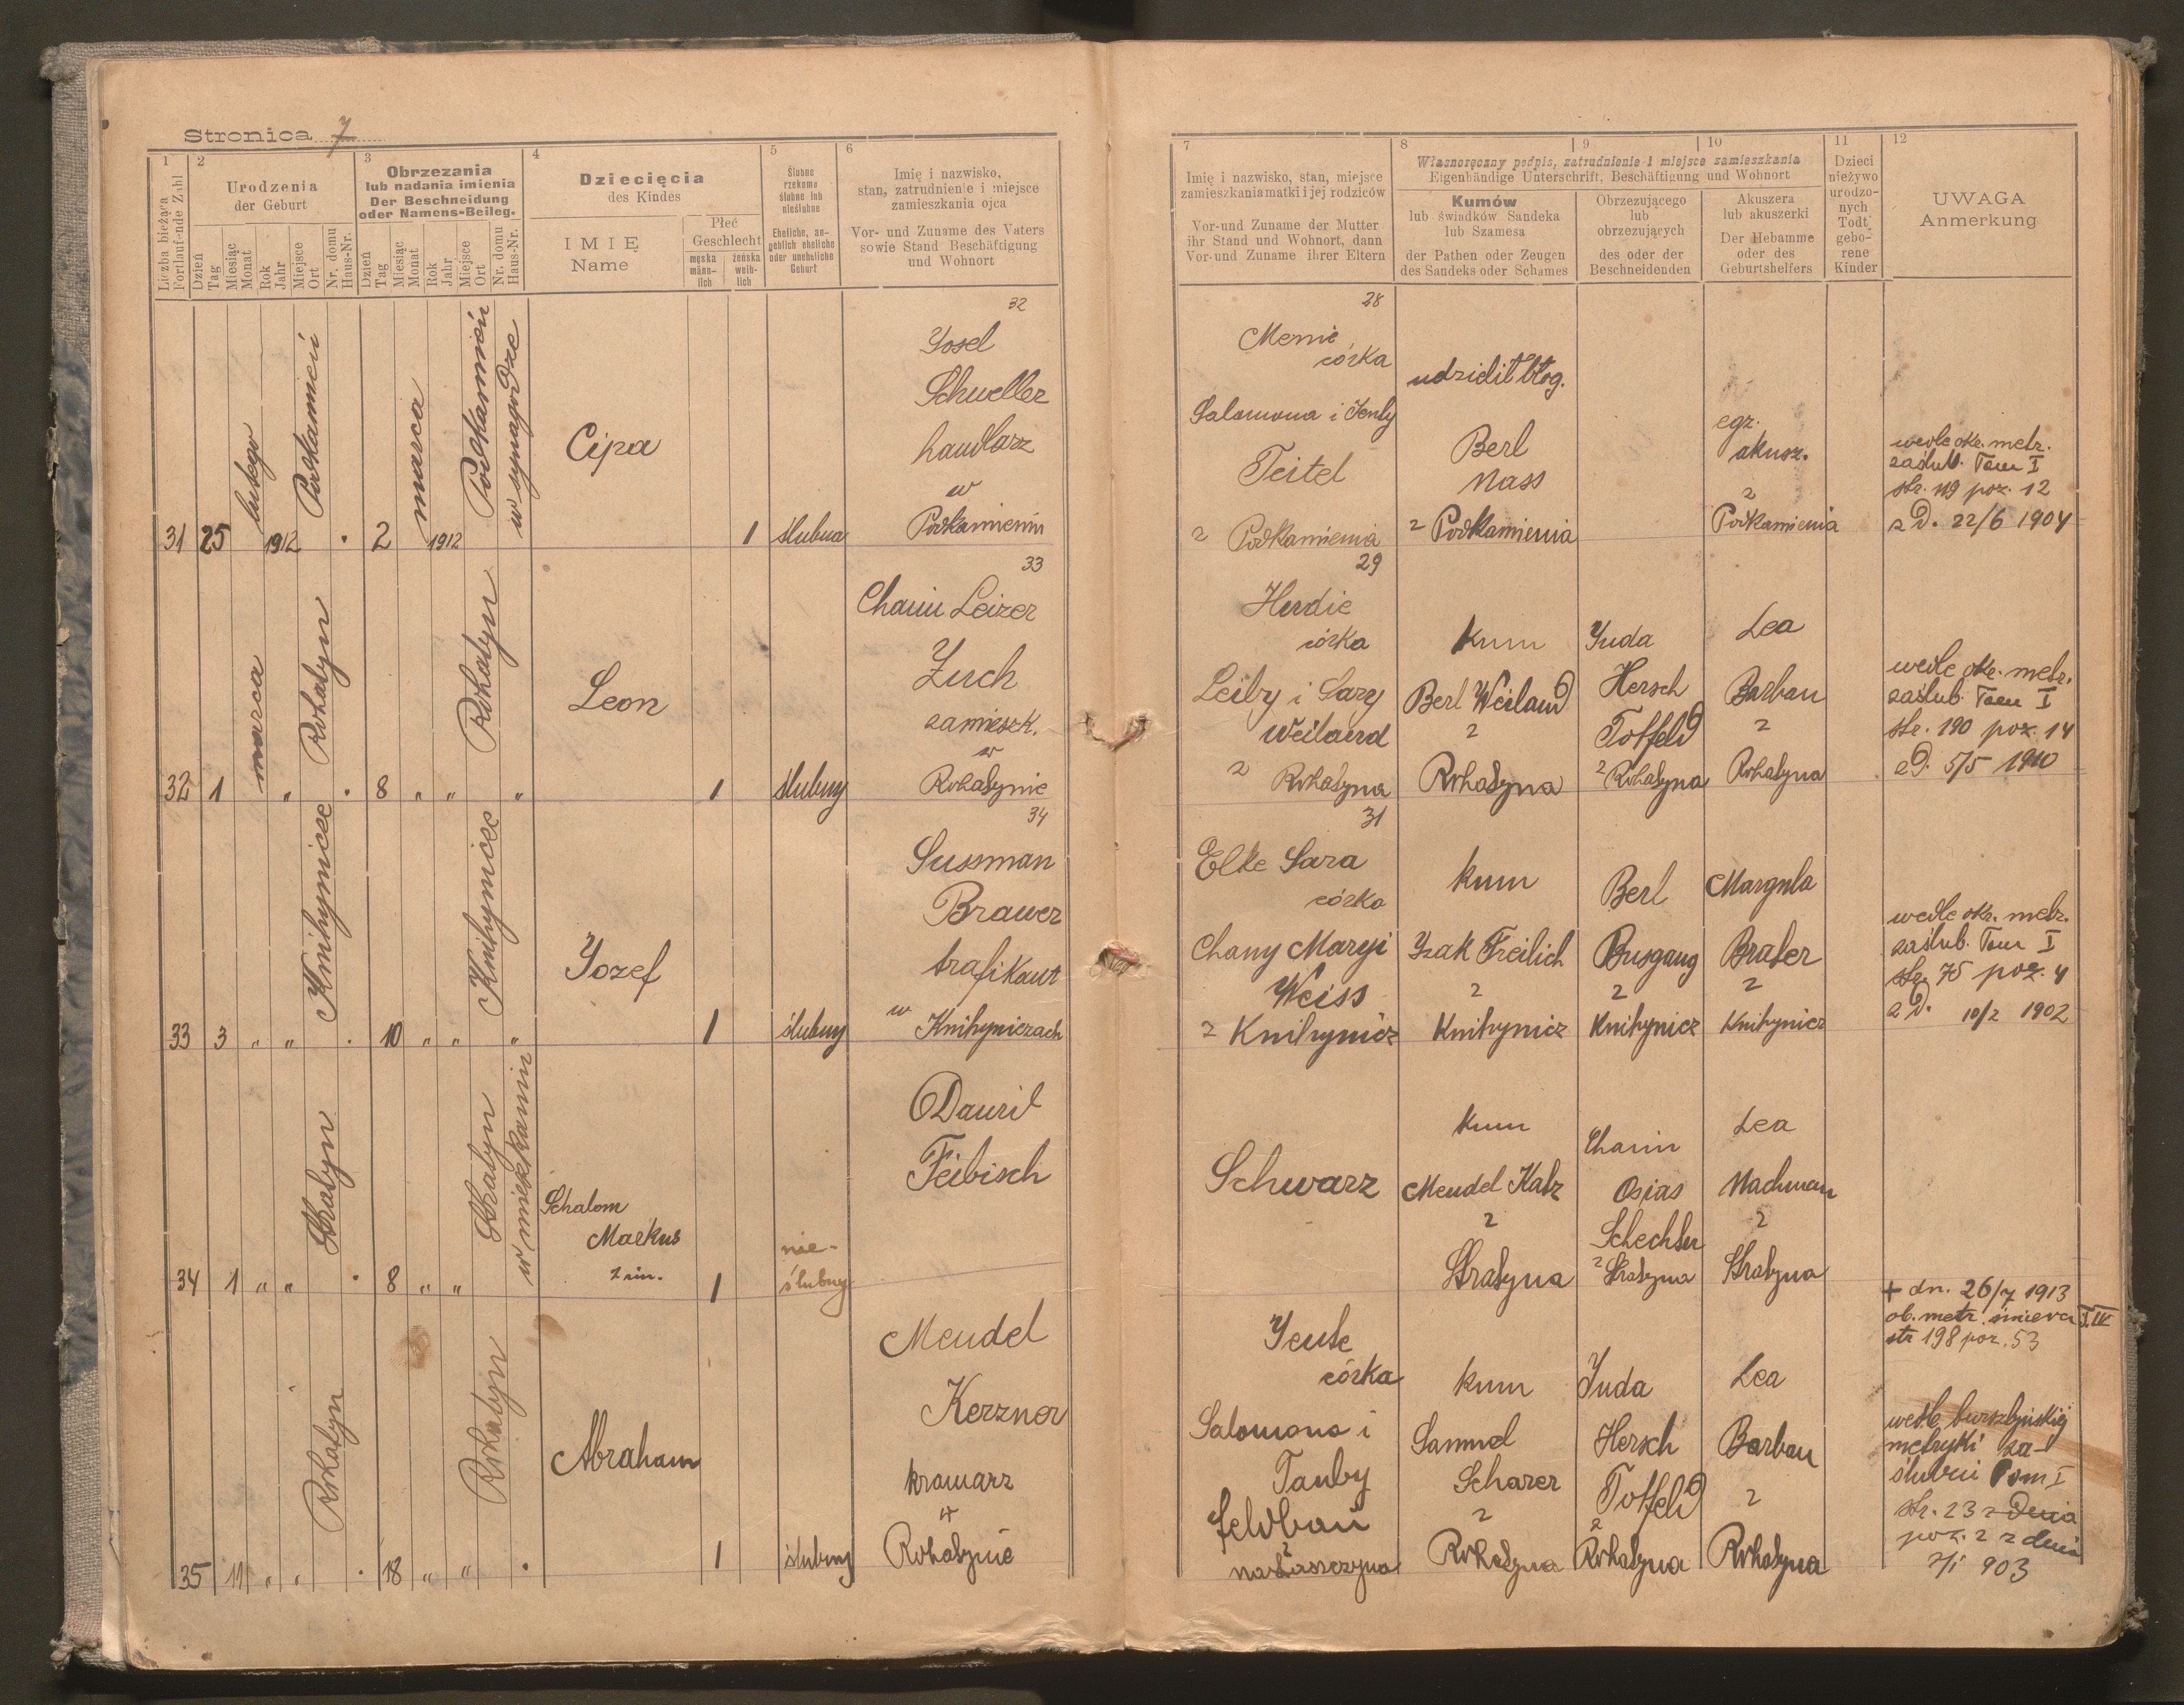 Stronica 7
1
Liczba bieżąca
Fortlaufende Zahl
2
Urodzenia
der Geburt
Dzień
Tag
Miesiąc
Monat
Rok
Jahr
Miejsce
Ort
Nr. domu
Haus-Nr.
3
Obrzezania
lub nadania imienia
Der Beschneidung
oder Namens-Beileg.
Dzień
Tag
Miesiąc
Monat
Rok
Jahr
Miejsce
Ort
Nr. domu
Haus-Nr.
4
Dziecięcia
des Kindes
IMIĘ
Name
Płeć
Geschlecht
męska
männ-
lich
żeńska
weib-
lich
5
Ślubne
rzekomo
ślubne lub
nieślubne
Eheliche, an-
geblich eheliche
oder uneheliche
Geburt
6
Imię i nazwisko,
stan, zatrudnienie i miejsce
zamieszkania ojca
Vor- und Zuname des Vaters
sowie Stand Beschäftigung
und Wohnort
7
Imię i nazwisko, stan, miejsce
zamieszkania matki i jej rodziców
Vor-und Zuname der Mutter
ihr Stand und Wohnort, dann
Vor-und Zuname ihrer Eltern
8
9
10
Własnoręczny podpis, zatrudnienie i miejsce zamieszkania
Eigenhändige Unterschrift, Beschäftigung und Wohnort
Kumów
lub świadków Sandeka
lub Szamesa
der Pathen oder Zeugen
des Sandeks oder Schames
Obrzezującego
lub
obrzezujących
des oder der
Beschneidenden
Akuszera
lub akuszerki
Der Hebamme
oder des
Geburtshelfers
11
Dzieci
nieżywo
urodzo-
nych
Todt
gebo-
rene
Kinder
12
UWAGA
Anmerkung
31 25 lutego 1912 Podkamień
2 marca 1912 Podkamień
w synagodze
Cipa
1
ślubna
32
Josel
Schueller
handlarz
w
Podkamieniu
28
Memie
córka
Salomona i Jenty
Teitel
z Podkamienia
udzielił błog.
Berl
Nass
z Podkamienia
egz.
akusz.
z
Podkamienia
wedle okr. metr.
zaślub. Tom I
str. 119 poz. 12
z D. 22/6 1904
32 1 marca " Rohatyn
8 " " Rohatyn "
Leon
1
ślubny
33
Chaim Leizer
Zuch
zamieszk.
w
Rohatynie
29
Herdie
córka
Leiby i Sary
Weiland
z Rohatyna
kum
Berl Weiland
z
Rohatyna
Juda
Hersch
Toffeld
z Rohatyna
Lea
Barban
z
Rohatyna
wedle okr. metr.
zaślub. Tom I
str. 190 poz. 14
z D. 5/5 1910
33 3 " " Knihynicze
10 " " Knihynicze "
Jozef
1
ślubny
34
Sussman
Brawer
trafikant
w Knihyniczach
31
Elke Sara
córka
Chany Maryi
Weiss
z Knihynicz
kum
Izak Freilich
z
Knihynicz
Berl
Busgang
z
Knihynicz
Margula
Brater
z
Knihynicz
wedle okr. metr.
zaślub. Tom I
str. 75 poz. 4
z D. 10/2 1902
34 1 " " Stratyn
8 " " Stratyn
w mieszkaniu
Schalom
Markus
2 im.
1
nie-
ślubny
Dawid
Feibisch
Schwarz
kum
Mendel Katz
z
Stratyna
Chaim
Osias
Schechter
z Stratyna
Lea
Nachman
z
Stratyna
35 11 " " Rohatyn
18 " " Rohatyn
Abraham
1
ślubny
Mendel
Kerzner
kramarz
w
Rohatynie
Jente
córka
Salomona i
Tauby
Feldbau
z
kum
Samuel
Scharer
z
Rohatyna
Juda
Hersch
Toffeld
z
Rohatyna
Lea
Barban
z
Rohatyna
+ dn. 26/7 1913
ob. metr. śmierci T. IV
str 198 poz. 53
wedle bursztyńskiej
metryki za-
ślubin Tom I
str. 23 z Dnia
poz. 2 z dnia
7/1 903